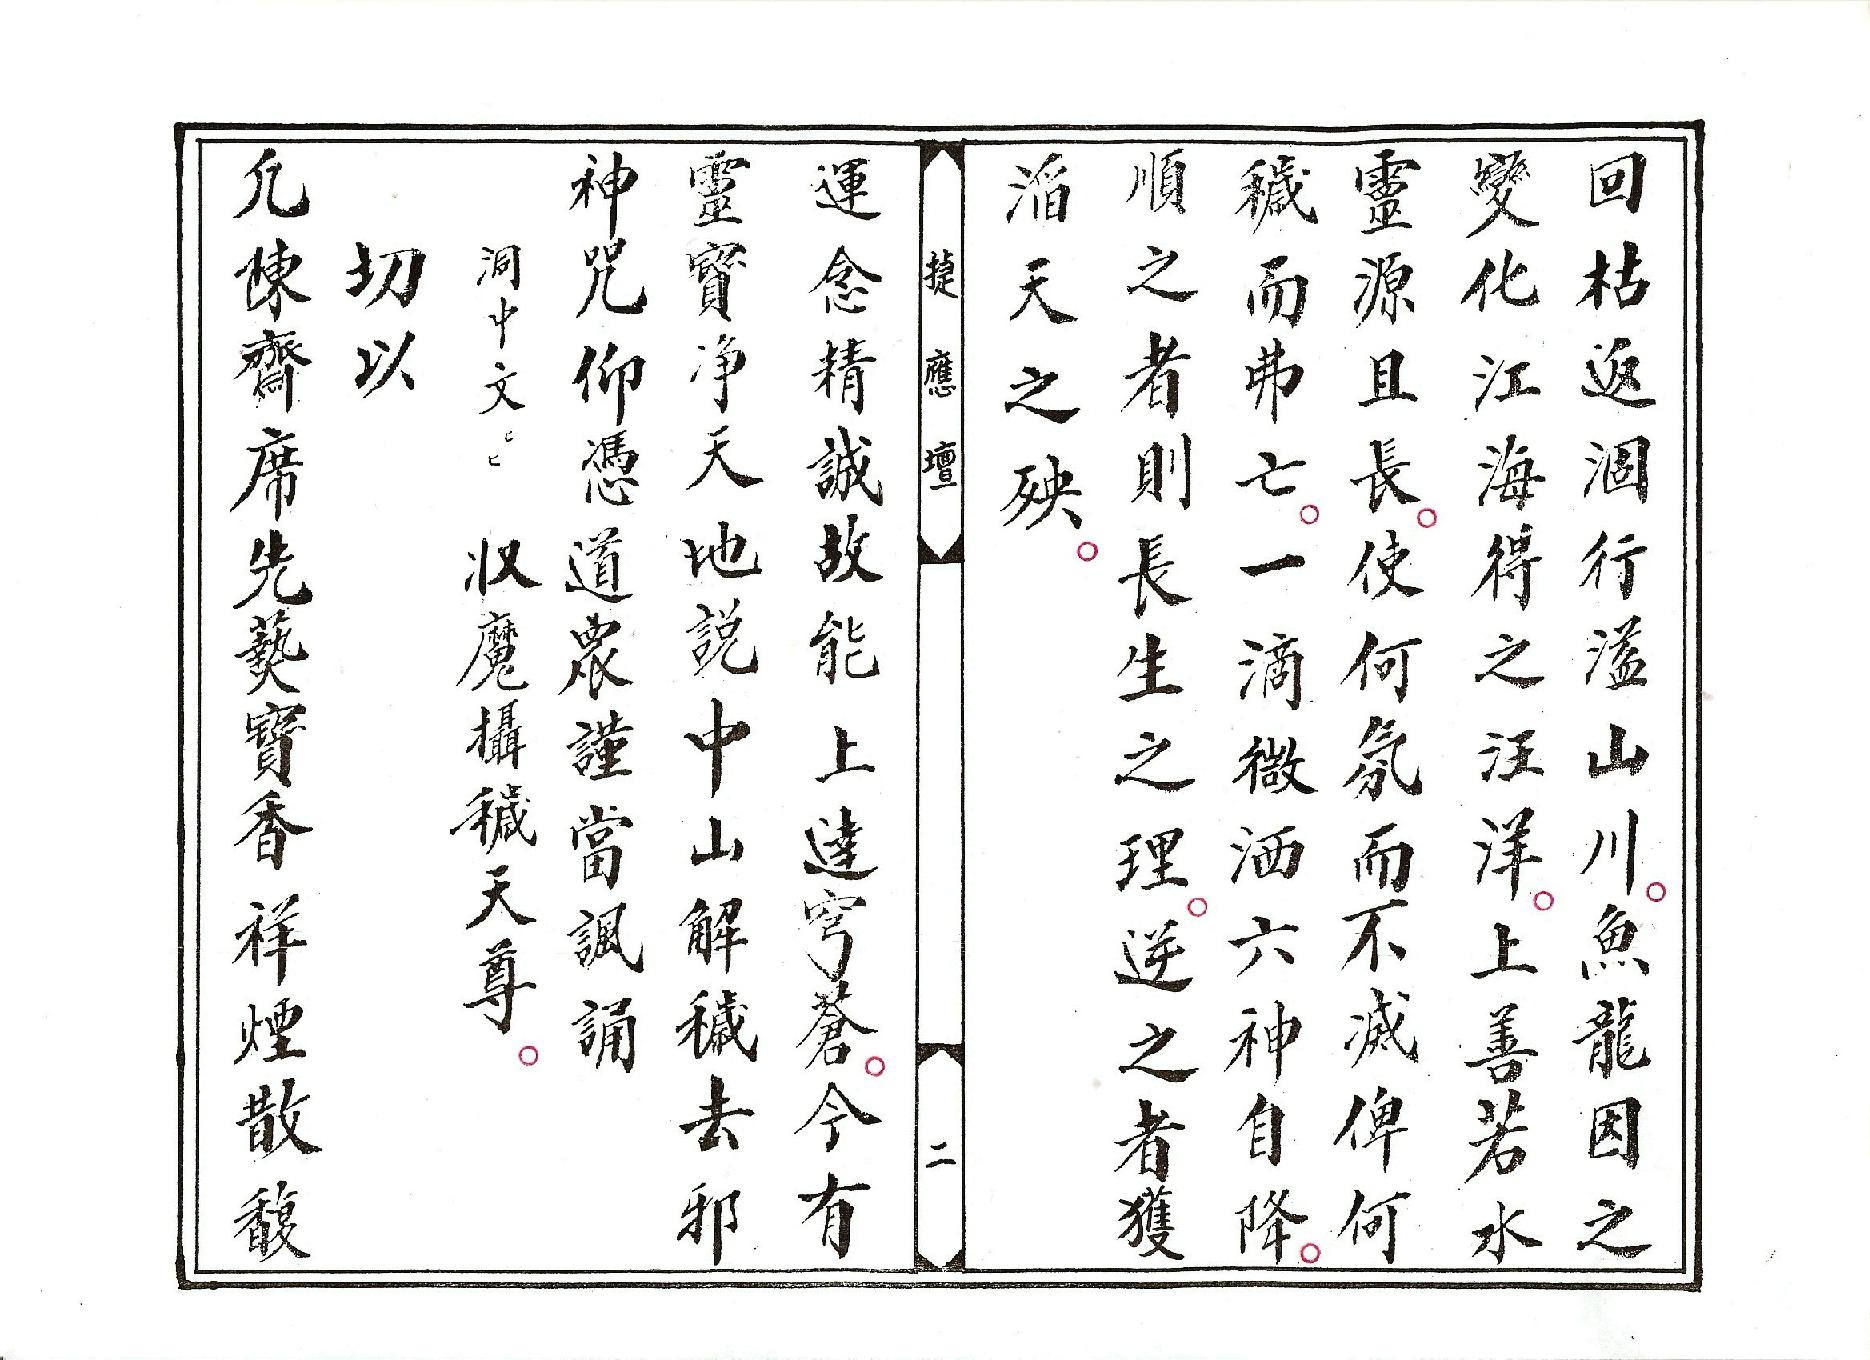 回枯返涸行溢山川○魚龍因之
變化江海得之汪洋○上善若水
靈源且長○使何氛而不滅俾何
穢而弗亡○一滴微洒六神自降○
順之者則長生之理○逆之者獲
滔天之殃○
捷應壇 二
運念精誠故能上達穹蒼○今有
靈寶净天地說中山解穢去邪
神咒仰憑道眾謹當諷誦
洞中文〻 收魔攝穢天尊○
切以
凢陳齋席先爇寶香祥煙散馥